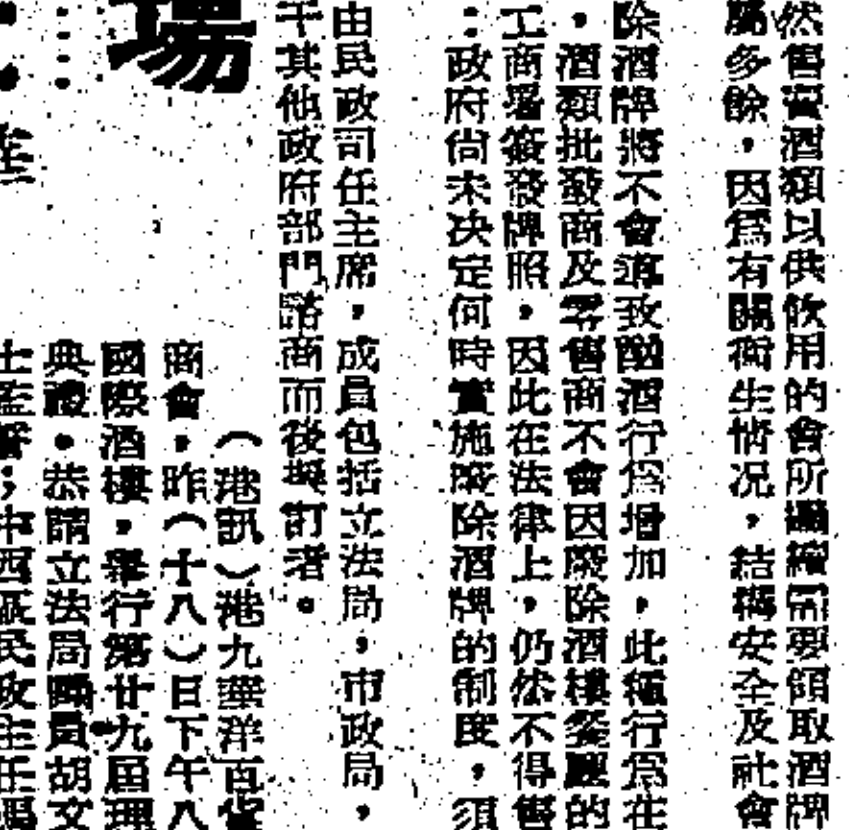 然售賣酒類以供飲用的會所繼續需要領取酒牌
屬多餘，因爲有關衞生情况，結構安全及社會
除酒牌將不會導致酗酒行爲增加，此種行爲在
，酒類批發商及零售商不會因廢除酒樓餐廳的
工商署簽發牌照，因此在法律上，仍然不得售
：政府尚未决定何時實施廢除酒牌的制度，須
由民政司任主席，成員包括立法局，市政局，
干其他政府部門諮商而後擬訂者。
場
（港訊）港九華洋百貨
商會，昨（十八）日下午八
國際酒樓，舉行第廿九屆理
典禮。恭請立法局議員胡文
士監誓；中西區民政主任